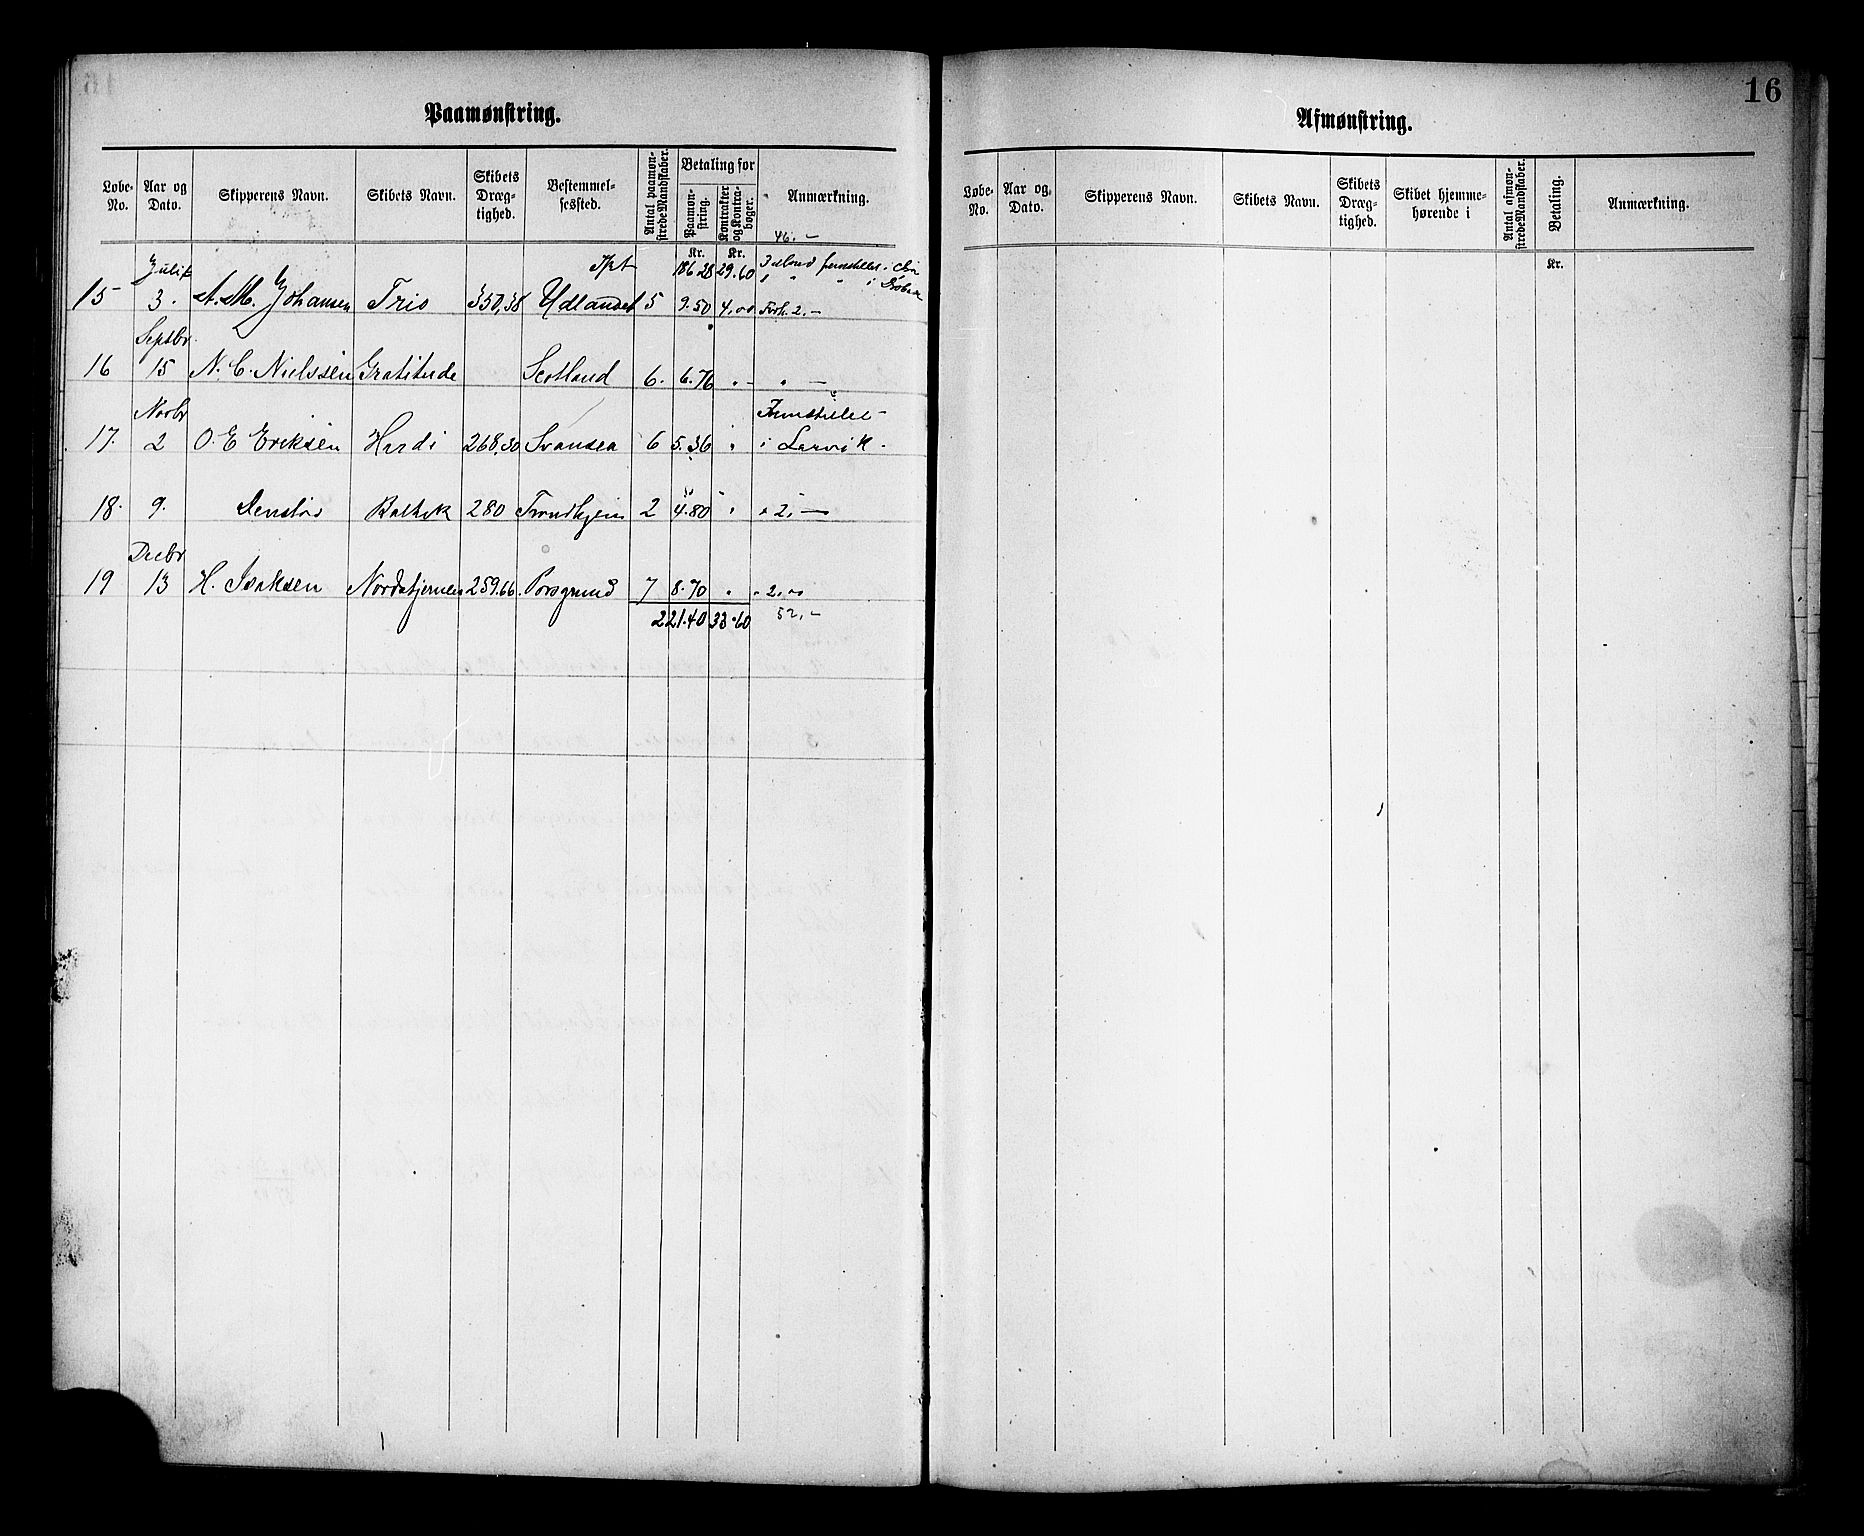 16
Paamønstring.
Løbe-No. Aar og Dato. Skipperens Navn. Skibets Navn. Skibets Dræg-tighed. Bestemmel-sessted. Antal paamøn-strede Mandskaber. Betaling for Paamøn-string. Kontrakter og Kontra-bøger. Anmærkning.
46.-
Kr. Kr.
186 28 29.60 3 Mand
Juli
15 3. A. M. Johansen Trio 350,38 Udlandet 5 9.50 4,00 Forh. 2,-
Septbr.
16 15 N. C. Nielssen Gratitude Scotland 6. 6.76 " - " -
Novbr
17. 2 O. E Eriksen Hardi 268,30 Svansea 6 5.36 " i Larvik.
18. 9. Baltik 280 Trondhjem 2 4.80 " " 2,-
Decbr
19 13 H. Isaksen Nordstjernen 259.66. Porsgrund 7 8.70 " " 2,00
221.40 33.60 52,-
Afmønstring.
Løbe-No. Aar og Dato. Skipperens Navn. Skibets Navn. Skibets Dræg-tighed. Skibet hjemme-hørende i Antal afmøn-strede Mandskaber. Betaling. Anmærkning.
Kr.